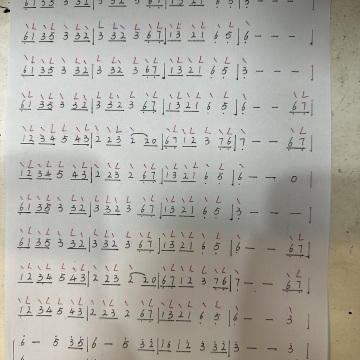 6135 3 32 | 332 3 67 | 1321 6 5 | 3 - - - |
6135 3 32 | 332 3 67 | 1321 6 5 | 6 - - - |
6135 3 32 | 332 3 67 | 1321 6 5 | 3 - - - |
6135 3 32 | 332 3 67 | 1321 6 5 | 6 - - 67 |
1234 5 43 | 2 23 2 20 | 6712 3 76 | 7 - - 67 |
1234 5 43 | 2 23 2 67 | 1321 6 5 | 6 - - 0
6135 3 32 | 332 3 67 | 1321 6 5 | 3 - - - |
6135 3 32 | 332 3 67 | 1321 6 5 | 6 - - 67 |
1234 5 43 | 2 23 2 20 | 6712 3 76 | 7 - - 67
1234 5 43 | 2 23 2 67 | 1321 6 5 | 6 - - 3 |
6 - 5 35 | 6 - 5 32 | 1612 3 332 | 3 - - 3 |